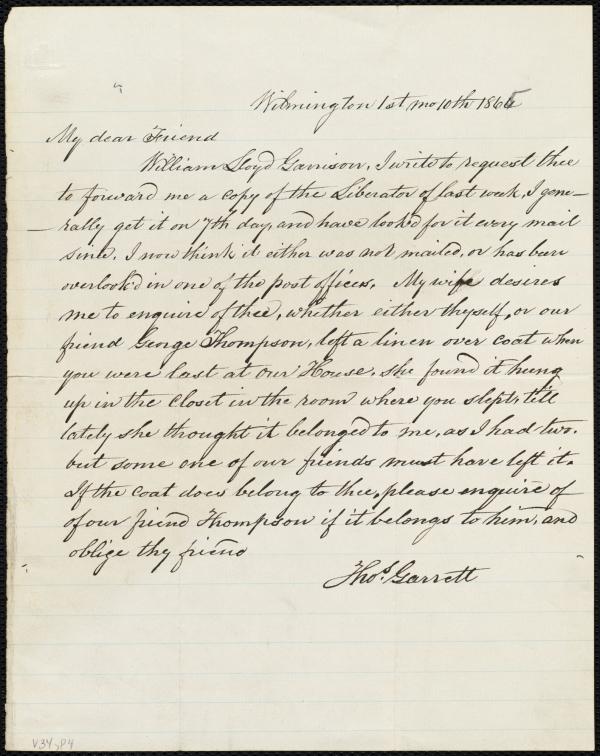 Wilmington 1st mo 10th 1865
My dear Friend
William Lloyd Garrison, I write to request thee
to forward me a copy of the Liberator of last week, I gene-
-rally get it on 7th day, and have look'd for it every mail
since. I now think it either was not mailed, or has been
overlook'd in one of the post offices. My wife desires
me to enquire of thee, whether either thyself, or our
friend George Thompson, left a linen over coat when
you were last at our House, she found it hung
up in the closet in the room where you slept, till
lately she thought it belonged to me, as I had two.
but some one of our friends must have left it.
If the coat does belong to thee, please enquire of
of our friend Thompson if it belongs to him, and
oblige thy friend
Thos. Garrett
V.34, P4